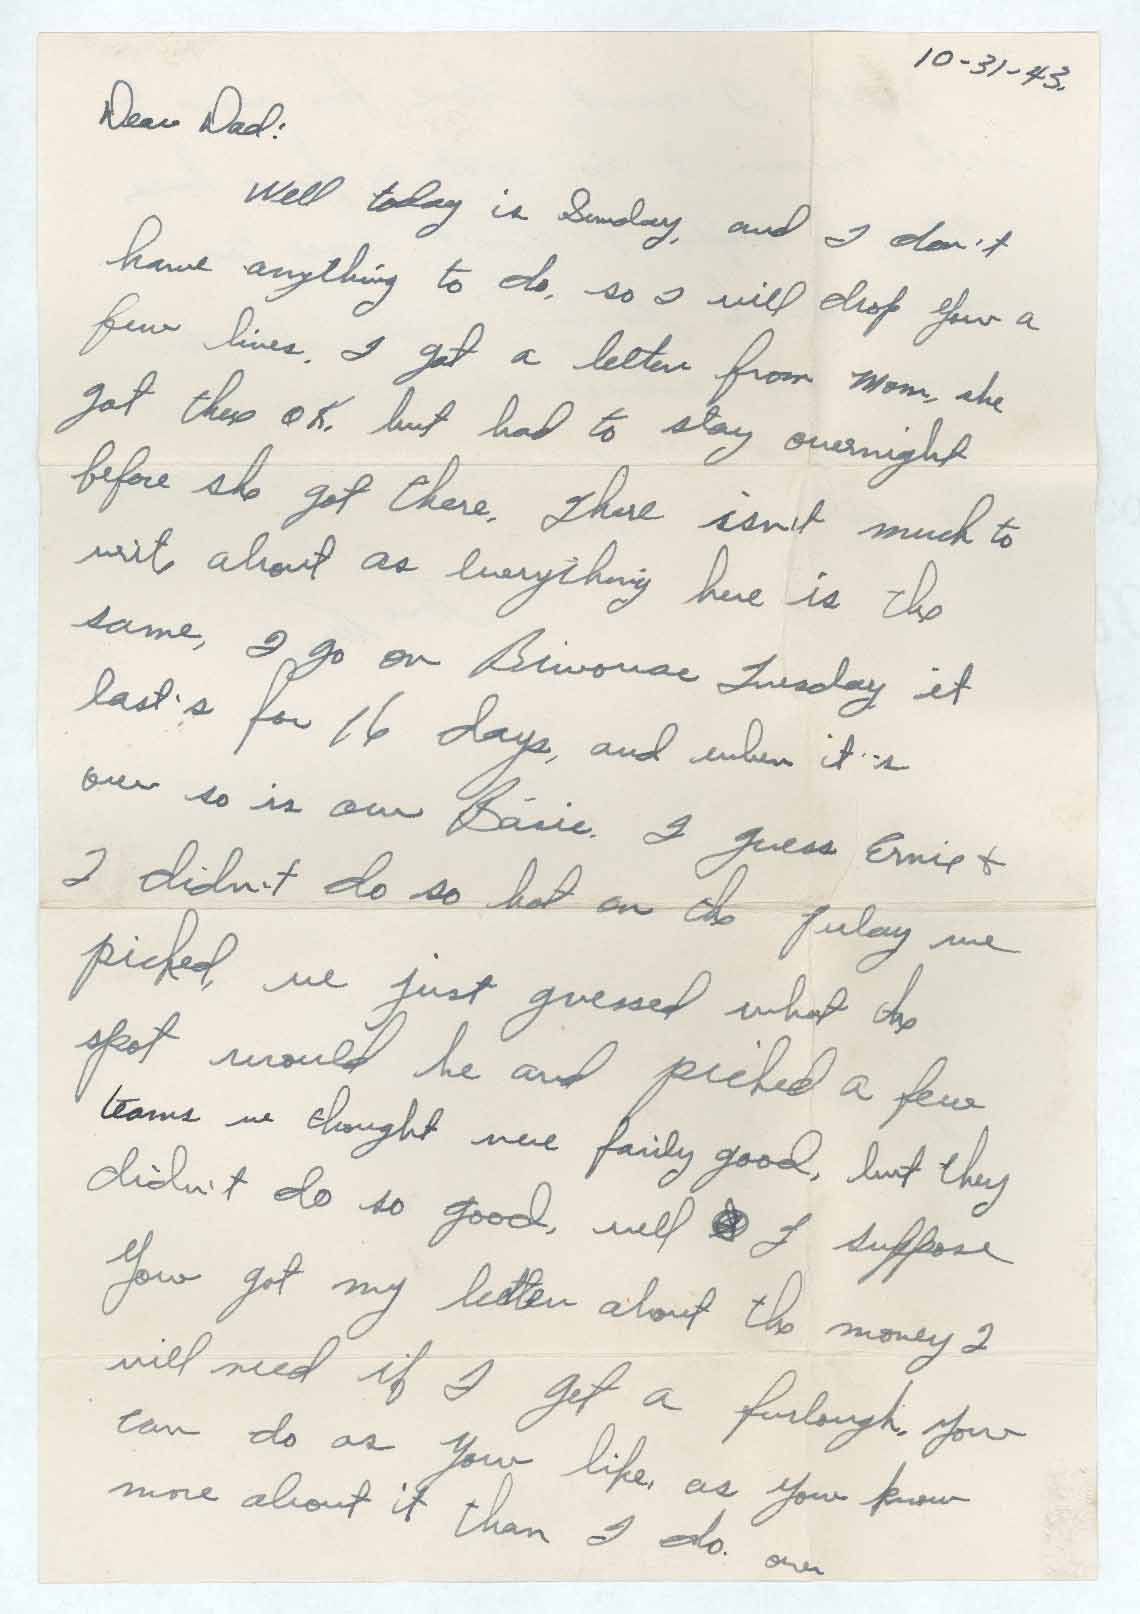 10-31-43.
Dear Dad:
Well today is Sunday, and I don't
have anything to do, so I will drop you a
few lines. I got a letter from Mom, she
got there OK. but had to stay overnight
before she got there. There isn't much to
write about as everything here is the
same, I go on Bivouac Tuesday it
last's for 16 days, and when it's
over so is our Basic. I guess Ernie +
I didn't do so hot on the we
picked, we just guessed what the
spot would be and picked a few
teams we thought were fairly good, but they
didn't do so good, well I suppose
you got my letter about the money I
will need if I get a furlough, you
can do as you like, as you know
more about it than I do. over